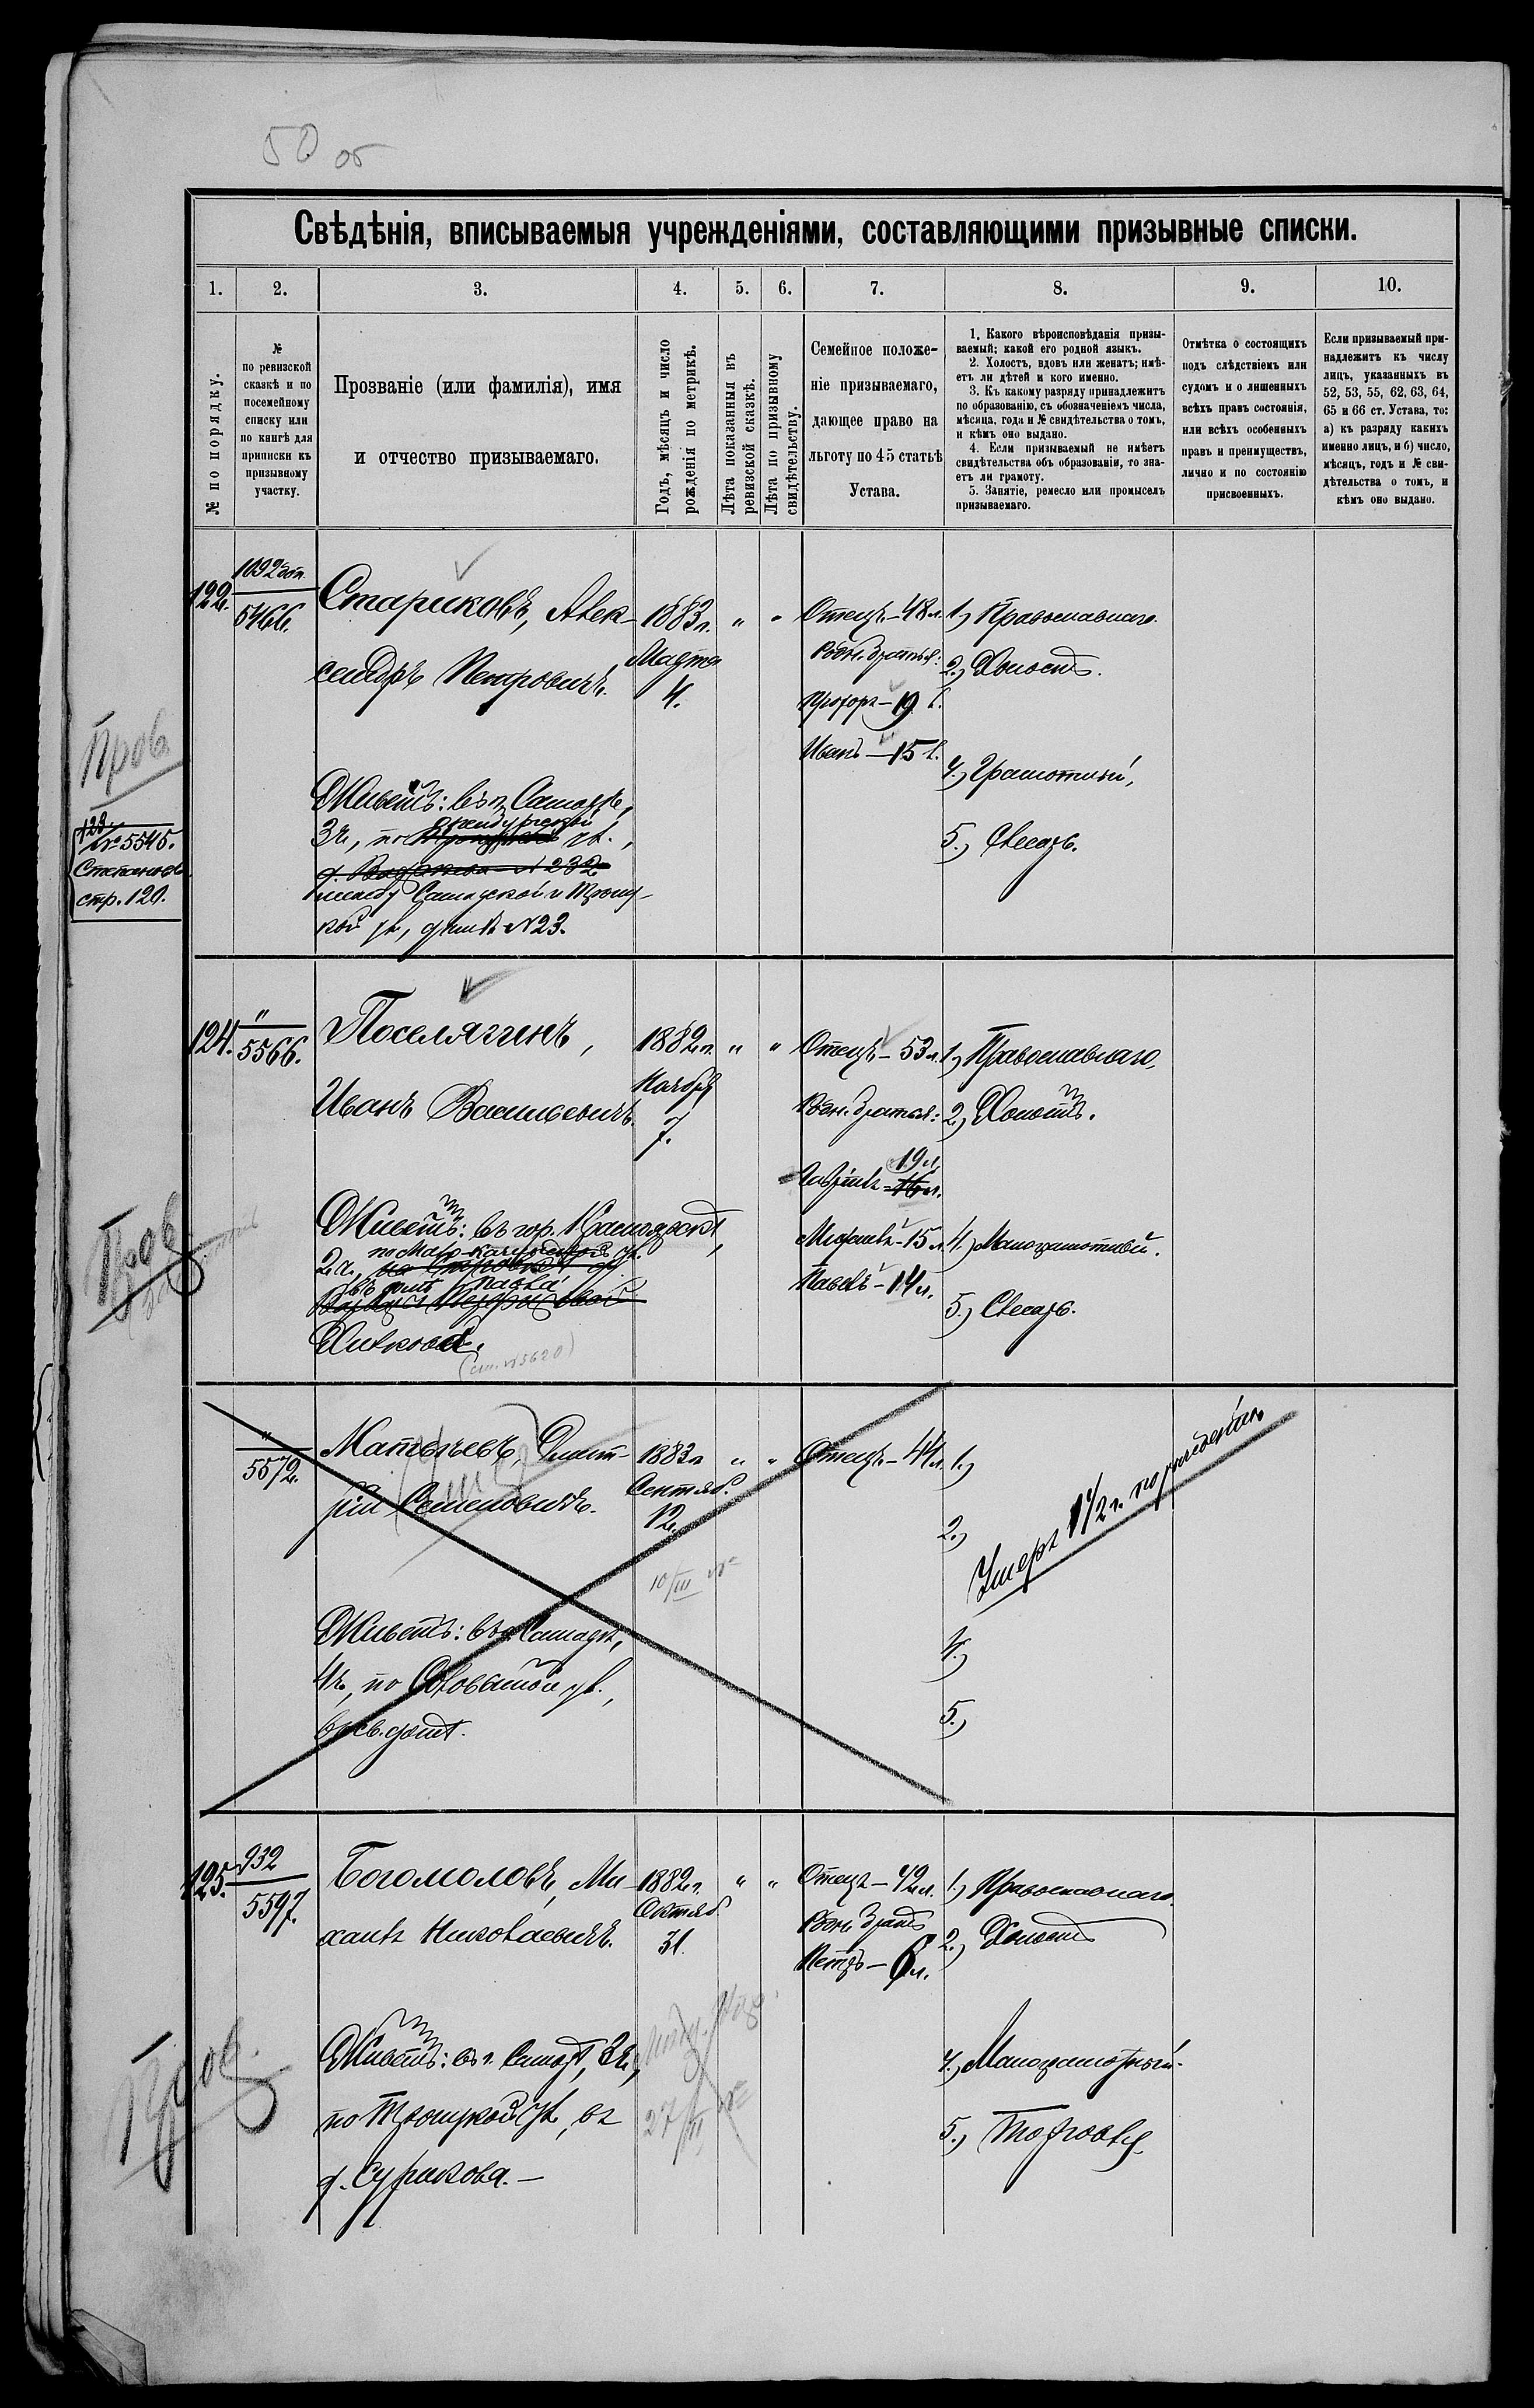 50 об
Свѣдѣнія, вписываемыя учрежденіями, составляющими призывные списки.
1. 2. 3. 4. 5. 6. 7. 8. 9. 10.
№ по порядку.
№
по ревизской
сказкѣ и по
посемейному
списку или
по книгѣ для
приписки къ
призывному
участку.
Прозваніе (или фамилія), имя
и отчество призываемаго.
Годъ, мѣсяцъ и число
рожденія по метрикѣ.
Лѣта показанныя въ
ревизской сказкѣ.
Лѣта по призывному
свидѣтельству.
Семейное положе-
ніе призываемаго,
дающее право на
льготу по 45 статьѣ
Устава.
1. Какого вѣроисповѣданія призы-
ваемый; какой его родной языкъ.
2. Холостъ, вдовъ или женатъ; имѣ-
етъ ли дѣтей и кого именно.
3. Къ какому разряду принадлежитъ
по образованію, съ обозначеніемъ числа,
мѣсяца, года и № свидѣтельства о томъ,
и кѣмъ оно выдано.
4. Если призываемый не имѣетъ
свидѣтельства объ образованіи, то зна-
етъ ли грамоту.
5. Занятіе, ремесло или промыселъ
призываемаго.
Отмѣтка о состоящихъ
подъ слѣдствіемъ или
судомъ и о лишенныхъ
всѣхъ правъ состоянія,
или всѣхъ особенныхъ
правъ и преимуществъ,
лично и по состоянію
присвоенныхъ.
Если призываемый при-
надлежитъ къ числу
лицъ, указанныхъ въ
52, 53, 55, 62, 63, 64,
65 и 66 ст. Устава, то:
а) къ разряду какихъ
именно лицъ, и б) число,
мѣсяцъ, годъ и № сви-
дѣтельства о томъ, и
кѣмъ оно выдано.
122.
1092 доп.
5466.
Стариковъ, Алек-
сандръ Петровичъ.
Живетъ: въ г. Самарѣ,
3 ч., по Оренбургской ул.,
между Самарской и Троиц-
кой ул., домъ № 23.
1883 г.
Марта
4.
" "
Отецъ - 48 л.
Родн. братья:
- 19 л.
Иванъ - 15 л.
1.) Православнаго.
2.) Холостъ.
4.) Грамотный,
5.) Слесарь.
Пров.
123.
№ 5545.
стр. 120.
124.
"
5566.
Поселягинъ,
Иванъ Васильевичъ.
Живетъ: въ гор. Красноярскѣ,
2 ч., по Мало-Качинской ул.
въ домѣ Павла
Хилкова.
(см. № 5620)
1882 г.
Ноября
7.
" "
Отецъ - 53 л.
Родн. братья:
Гавріилъ - 19 л.
Михаилъ - 15 л.
Павелъ - 14 л.
1.) Православнаго.
2.) Холостъ.
4.) Малограмотный.
5.) Слесарь.
Пров
"
5572.
Матвѣевъ, Дмит-
рій Семеновичъ.
Живетъ: въ г. Самарѣ,
4 ч., по Садовой ул.,
въ св. домѣ.
1883 г.
Сентяб.
12.
10/III
" "
Отецъ - 44 л.
1.)
2.)
Умеръ 1 1/2 г. по рожденіи
4.)
5.)
125.
932
5597.
Богомоловъ, Ми-
хаилъ Николаевичъ.
Живетъ: въ г. Самарѣ, 3 ч.,
по Троицкой ул., въ
д. Сурикова. —
1882 г.
Октяб.
31.
27/II
" "
Отецъ - 42 л.
Родн. братъ
Петръ - 6 л.
1.) Православнаго.
2.) Холостъ
4.) Малограмотный.
5.) Торговля
Пров.